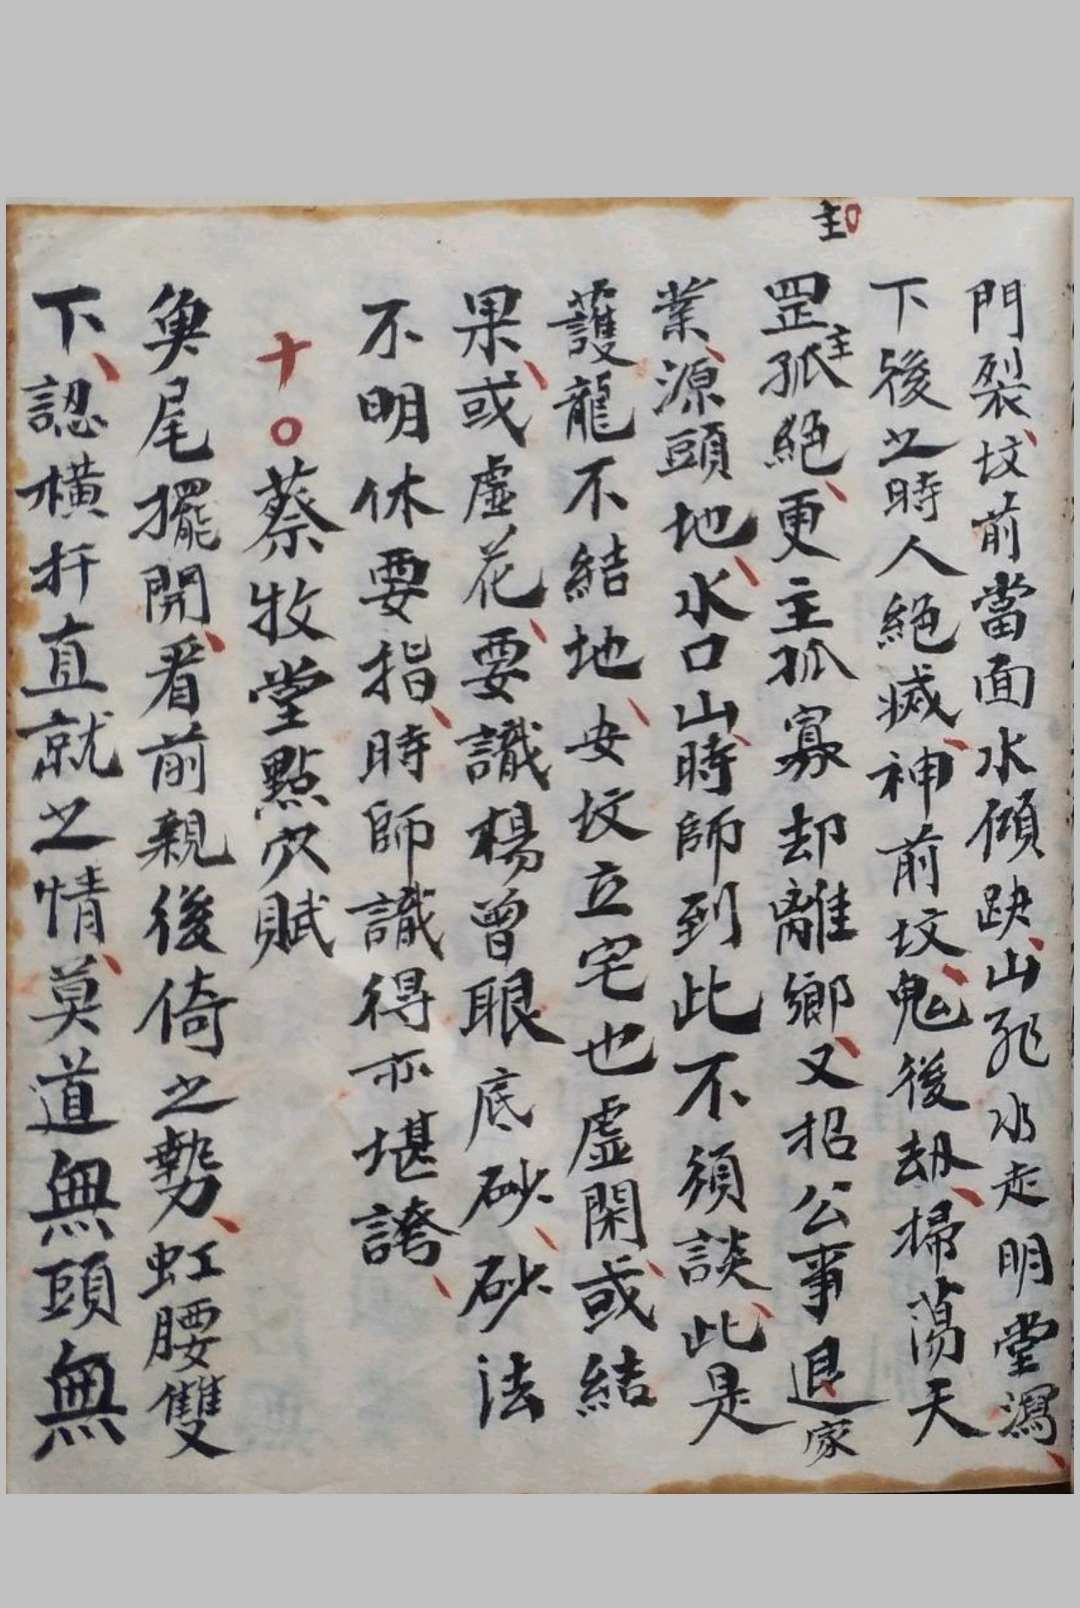 主
門裂坟前當面水傾跌山飛水走明堂瀉
下後之時人絕滅神前坟鬼後劫掃蕩天
罡孤主絕更主孤寡却離鄉又招公事退家
業源頭地水口山時師到此不須談此是
護龍不結地安坟立宅也虛閑或結
果或虛花要識楊曾眼底砂砂法
不明休要指時師識得亦堪誇
十〇蔡牧堂點穴賦
魚尾擺開看前親後倚之勢虹腰雙
下認橫扦直就之情莫道無頭無